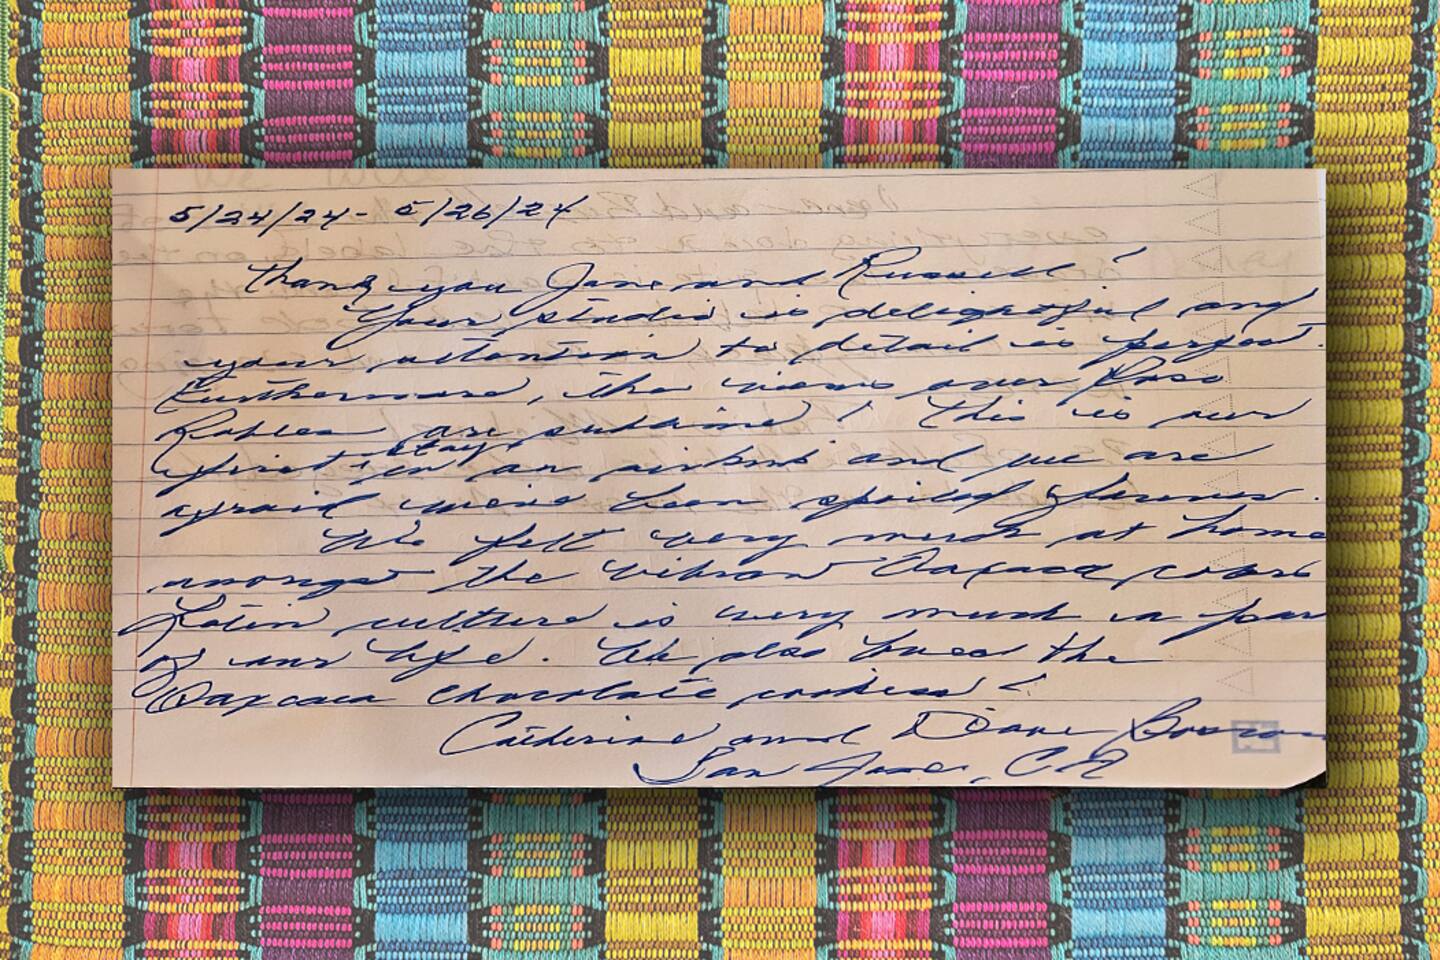 5/24/24 - 5/26/24
Thank you Jane and Russell!
Your studio is delightful and
your attention to detail is perfect.
Furthermore, the views over Paso
Robles are sublime! This is our
first stay in an airbnb and we are
afraid we've been spoiled forever.
We felt very much at home
amongst the vibrant Oaxaca colors
Latin culture is very much a par
of our life. We also loved the
Oaxcaca chocolate cookies!
Catherine and Diane
San Jose, CA